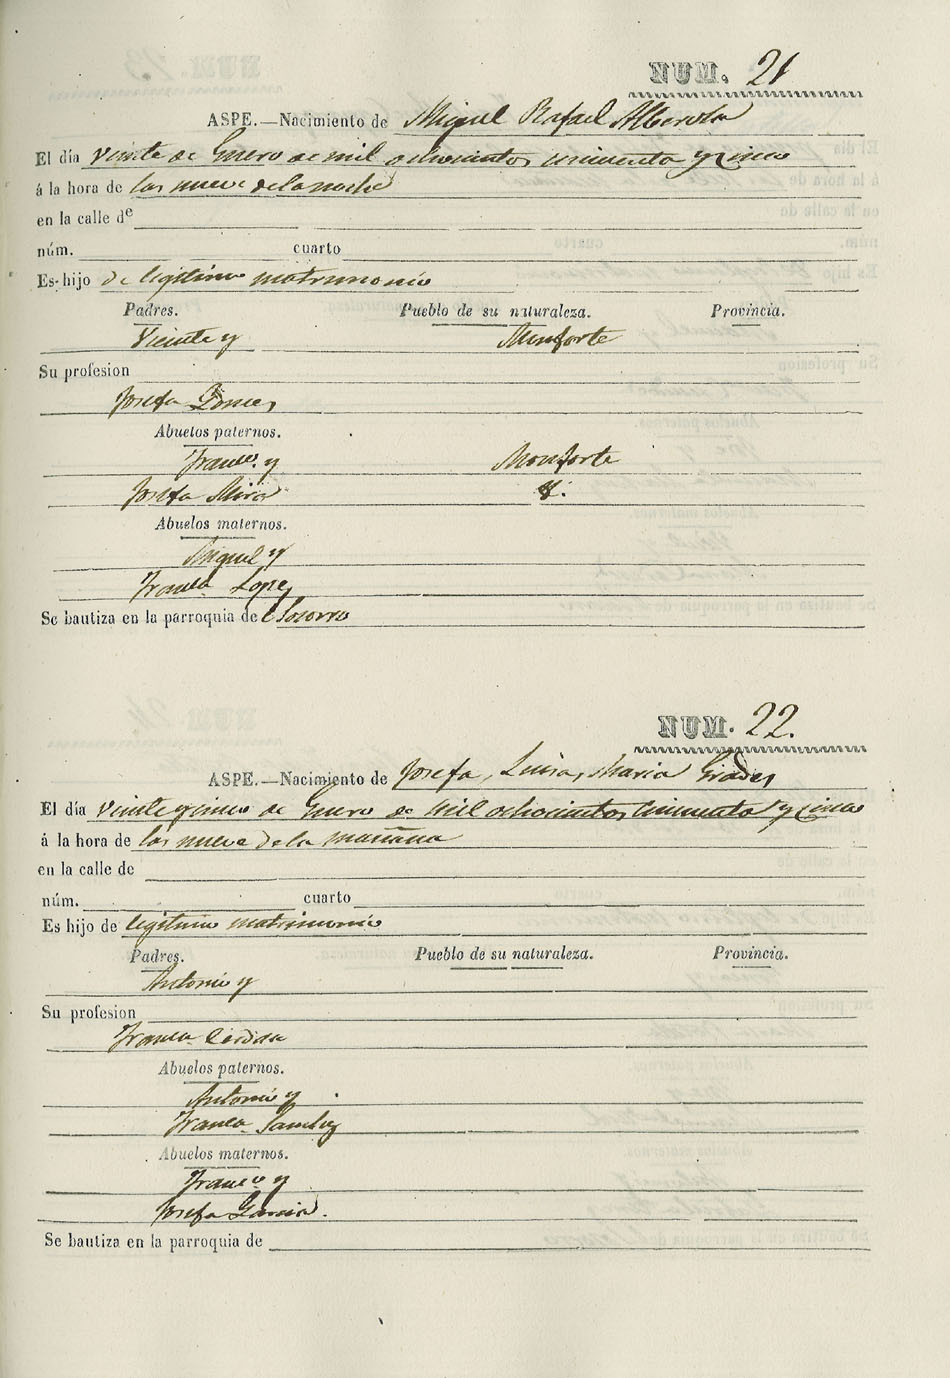 NUM. 21
ASPE.—Nacimiento de Miguel Rafael Alberola
El día veinte de Enero de mil ochocientos cincuenta y cinco
á la hora de las nueve de la noche
en la calle de
núm. cuarto
Es hijo de legitimo matrimonio
Padres. Pueblo de su naturaleza. Provincia.
Vicente y Monforte
Su profesion
Josefa
Abuelos paternos.
Franco. y Monforte
Josefa Miró
Abuelos maternos.
Miguel y
Franca Lopez
Se bautiza en la parroquia del Socorro
NUM. 22.
ASPE.—Nacimiento de Josefa, Luisa, Maria
El día veinte y cinco de Enero de mil ochocientos cincuenta y cinco
á la hora de las nueve de la mañana
en la calle de
núm. cuarto
Es hijo de legitimo matrimonio
Padres. Pueblo de su naturaleza. Provincia.
Antonio y
Su profesion
Franca Cerdan
Abuelos paternos.
Antonio y
Franca Sanchez
Abuelos maternos.
Franco y
Josefa Garcia.
Se bautiza en la parroquia de